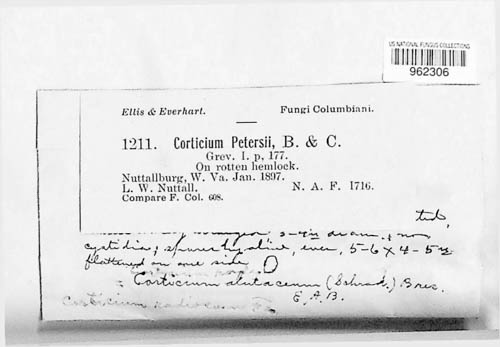 US NATIONAL FUNGUS COLLECTIONS
962306
Ellis & Everhart. Fungi Columbiani.
1211. Corticium Petersii, B. & C.
Grev. I. p, 177.
On rotten hemlock.
Nuttallburg, W. Va. Jan. 1897.
L. W. Nuttall. N. A. F. 1716.
Compare F. Col. 608.
diam., non
cystidia; spores hyaline, even, 5-6 X 4-5
flattened on one side
= Corticium alutaceum (Schrad.) Bres.
E. A. B.
Corticium radiosum Fr.